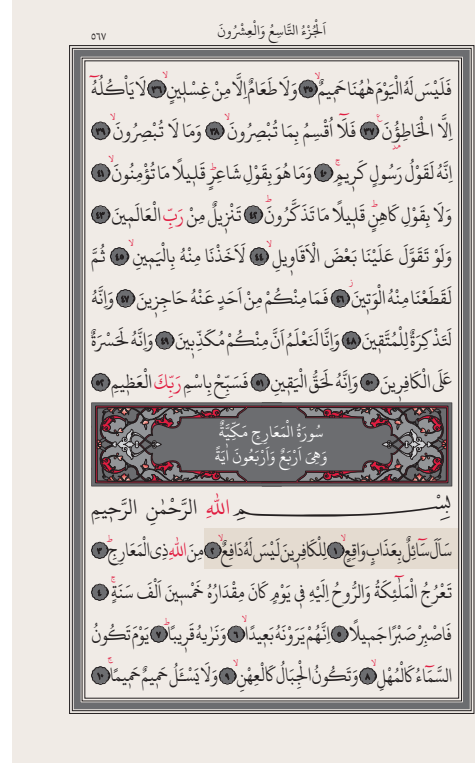 اَلْجُزْءُ التَّاسِعُ وَالْعِشْرُونَ
٥٦٧
فَلَيْسَ لَهُ الْيَوْمَ هٰهُنَا حَمٖيمٌۙ ﴿٣٥﴾ وَلَا طَعَامٌ اِلَّا مِنْ غِسْلٖينٍۙ ﴿٣٦﴾ لَا يَأْكُلُهُٓ
اِلَّا الْخَاطِؤُ۫نَ۟ ﴿٣٧﴾ فَلَٓا اُقْسِمُ بِمَا تُبْصِرُونَۙ ﴿٣٨﴾ وَمَا لَا تُبْصِرُونَۙ ﴿٣٩﴾
اِنَّهُ لَقَوْلُ رَسُولٍ كَرٖيمٍۚ ﴿٤٠﴾ وَمَا هُوَ بِقَوْلِ شَاعِرٍؕ قَلٖيلًا مَا تُؤْمِنُونَۙ ﴿٤١﴾
وَلَا بِقَوْلِ كَاهِنٍؕ قَلٖيلًا مَا تَذَكَّرُونَؕ ﴿٤٢﴾ تَنْزٖيلٌ مِنْ رَبِّ الْعَالَمٖينَ ﴿٤٣﴾
وَلَوْ تَقَوَّلَ عَلَيْنَا بَعْضَ الْاَقَاوٖيلِۙ ﴿٤٤﴾ لَاَخَذْنَا مِنْهُ بِالْيَمٖينِۙ ﴿٤٥﴾ ثُمَّ
لَقَطَعْنَا مِنْهُ الْوَتٖينَؗ ﴿٤٦﴾ فَمَا مِنْكُمْ مِنْ اَحَدٍ عَنْهُ حَاجِزٖينَ ﴿٤٧﴾ وَاِنَّهُ
لَتَذْكِرَةٌ لِلْمُتَّقٖينَ ﴿٤٨﴾ وَاِنَّا لَنَعْلَمُ اَنَّ مِنْكُمْ مُكَذِّبٖينَ ﴿٤٩﴾ وَاِنَّهُ لَحَسْرَةٌ
عَلَى الْكَافِرٖينَ ﴿٥٠﴾ وَاِنَّهُ لَحَقُّ الْيَقٖينِ ﴿٥١﴾ فَسَبِّحْ بِاسْمِ رَبِّكَ الْعَظٖيمِ ﴿٥٢﴾
سُورَةُ الْمَعَارِجِ مَكِّيَّةٌ
وَهِيَ اَرْبَعٌ وَاَرْبَعُونَ اٰيَةً
بِسْمِ اللهِ الرَّحْمٰنِ الرَّحٖيمِ
سَاَلَ سَٓائِلٌ بِعَذَابٍ وَاقِعٍۙ ﴿١﴾ لِلْكَافِرٖينَ لَيْسَ لَهُ دَافِعٌۙ ﴿٢﴾ مِنَ اللهِ ذِي الْمَعَارِجِؕ ﴿٣﴾
تَعْرُجُ الْمَلٰٓئِكَةُ وَالرُّوحُ اِلَيْهِ فٖي يَوْمٍ كَانَ مِقْدَارُهُ خَمْسٖينَ اَلْفَ سَنَةٍۚ ﴿٤﴾
فَاصْبِرْ صَبْرًا جَمٖيلًا ﴿٥﴾ اِنَّهُمْ يَرَوْنَهُ بَعٖيدًاۙ ﴿٦﴾ وَنَرٰيهُ قَرٖيبًاؕ ﴿٧﴾ يَوْمَ تَكُونُ
السَّمَٓاءُ كَالْمُهْلِۙ ﴿٨﴾ وَتَكُونُ الْجِبَالُ كَالْعِهْنِۙ ﴿٩﴾ وَلَا يَسْـَٔلُ حَمٖيمٌ حَمٖيمًاۚ ﴿١٠﴾